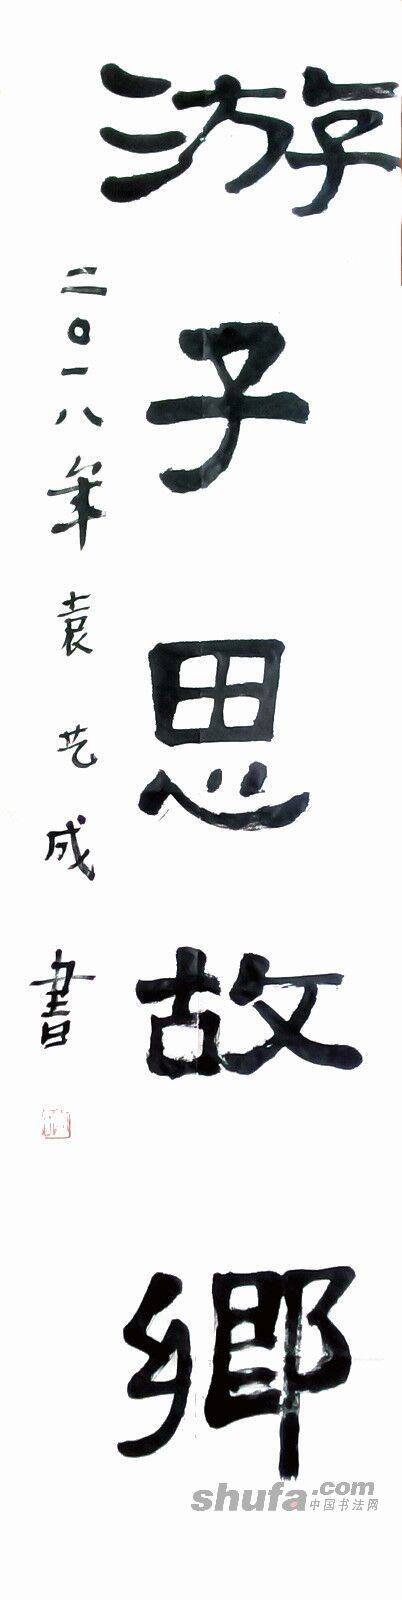 游子思故鄉
二〇一八年袁艺成書
shufa.com
中国书法网